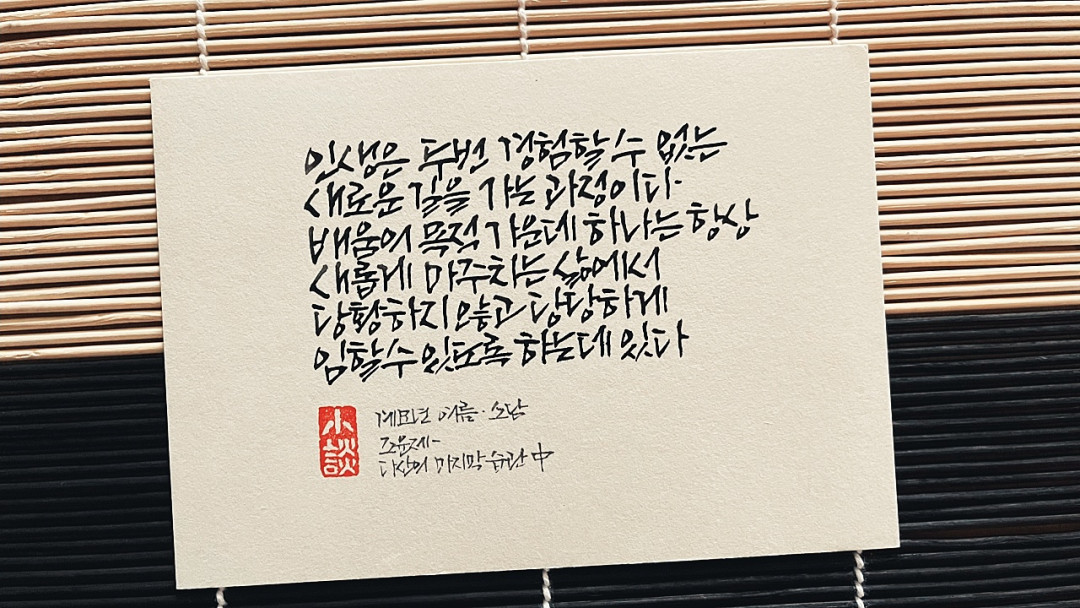 인생은 두번 경험할 수 없는
새로운 길을 가는 과정이다.
배움의 목적 가운데 하나는 항상
새롭게 마주치는 삶에서
당황하지 않고 당당하게
임할 수 있도록 하는데 있다
小談
계묘년 여름·소담
조윤제-
다산의 마지막 습관 中